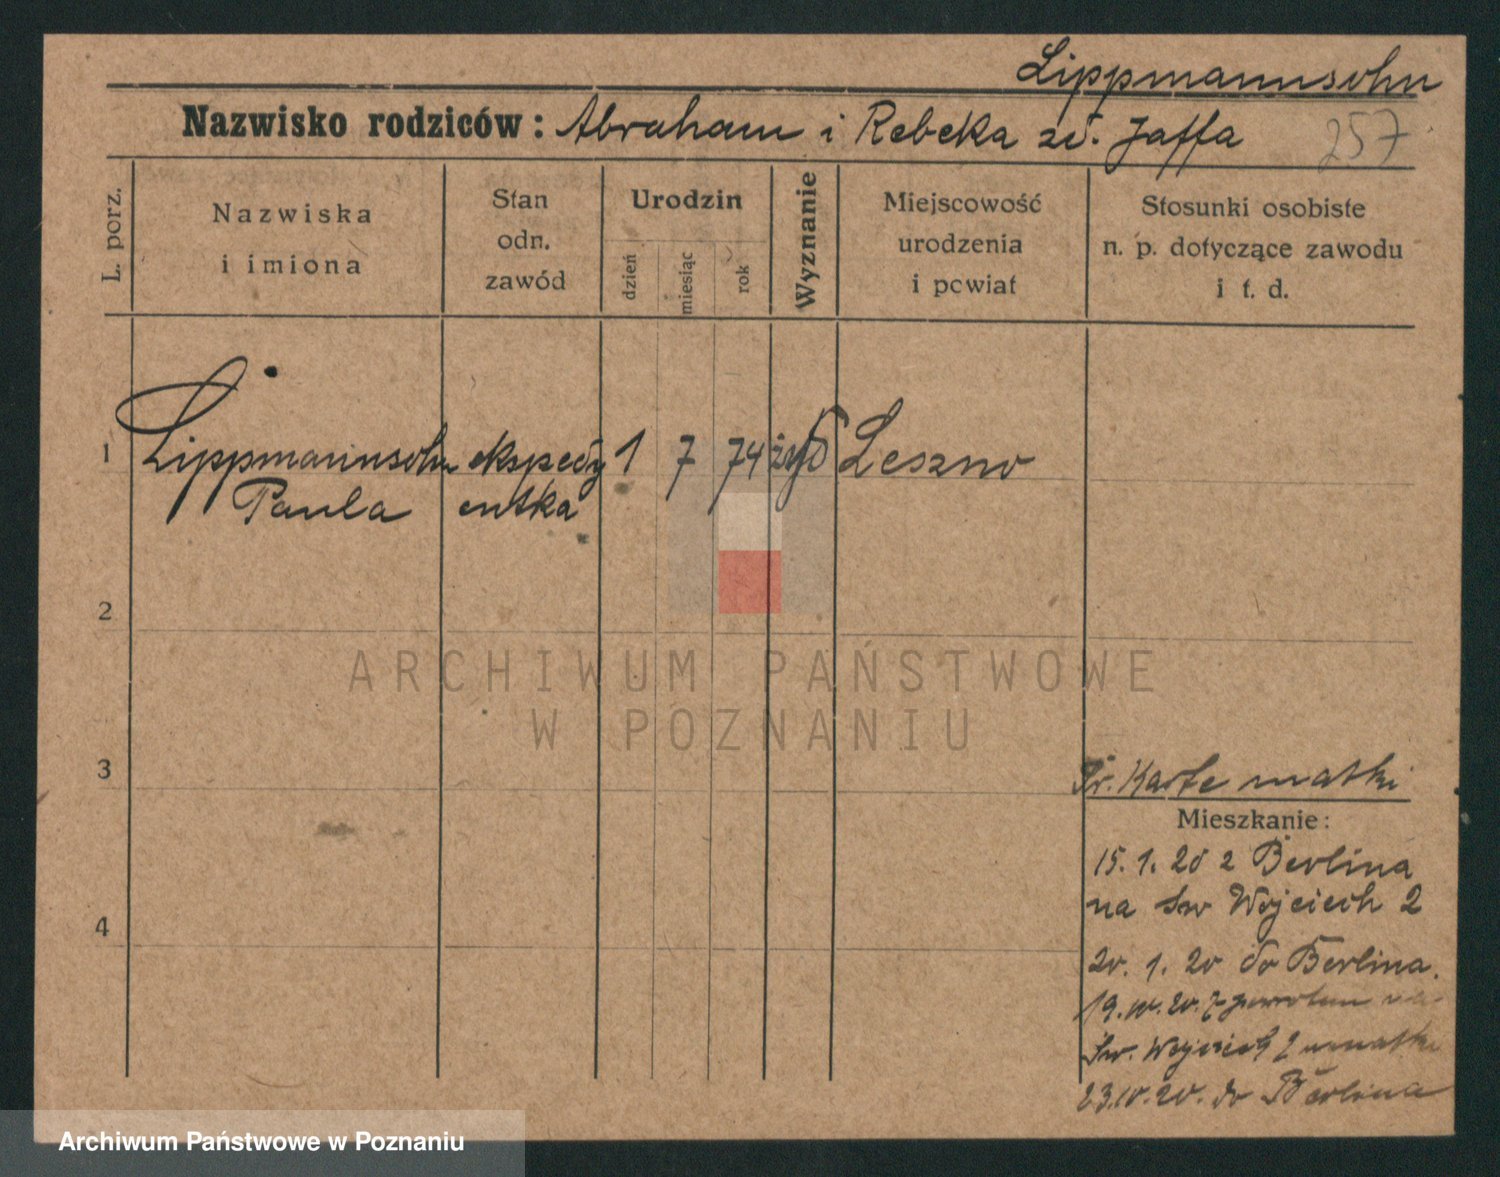 Lippmannsohn
Nazwisko rodziców: Abraham i Rebeka zd. Jaffa
257
L. porz.
Nazwiska
i imiona
Stan
odn.
zawód
Urodzin
dzień
miesiąc
rok
Wyznanie
Miejscowość
urodzenia
i powiat
Stosunki osobiste
n. p. dotyczące zawodu
i t. d.
1 Lippmannsohn ekspedy 1 7 74 żyd Leszno
Paula entka
2
ARCHIWUM PAŃSTWOWE
W POZNANIU
3
Pr. Karte matki
Mieszkanie:
15. 1. 20 z Berlina
na Sw Wojciech 2
4
20. 1. 20 do Berlina.
19. IV. 20. z powrotem na
Św. Wojciech 2 u matki
23. IV. 20. do Berlina
Archiwum Państwowe w Poznaniu